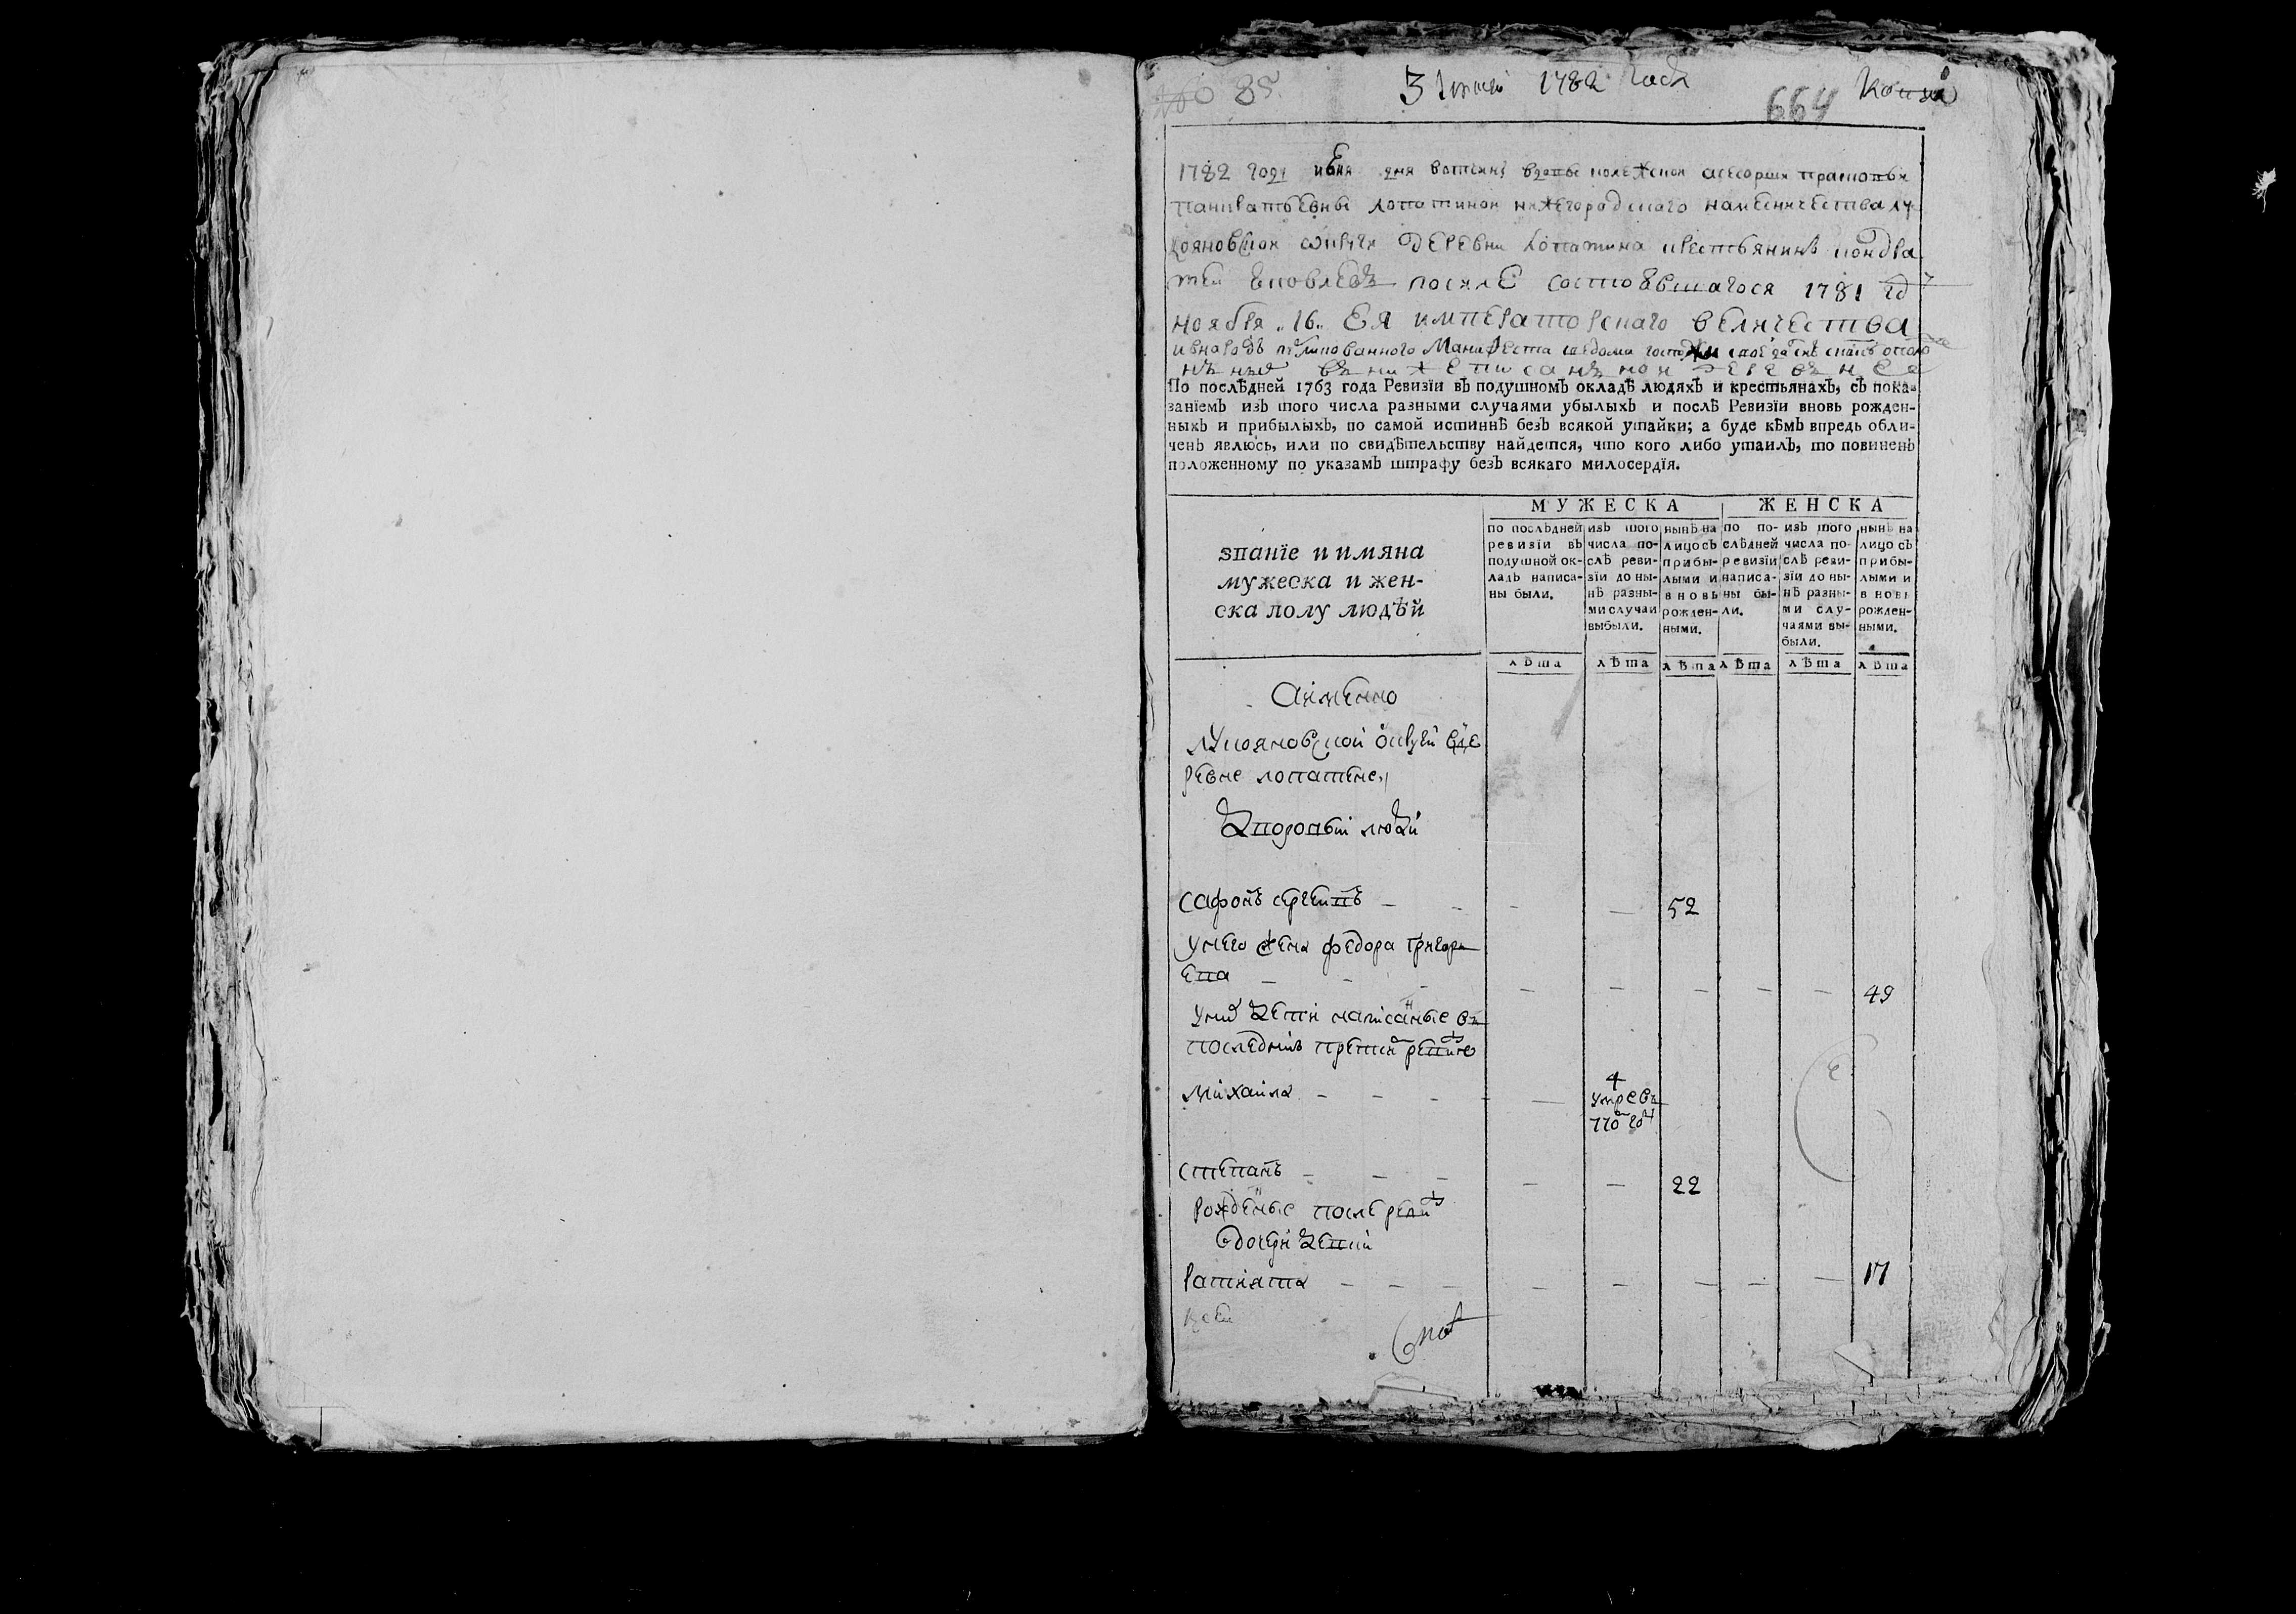 85. 3 июня 1782 года 664 Копия
1782 году июня дня вотчины вдовы колежской асесорши
лопатиной нижегородскаго наместничества лу
кояновской округи деревни лопатина крестьянинъ кондра
тей яковлевъ после состоявшагося 1781 год
ноября „16„ ея императорскаго величества
и в народъ публикованного манифеста
нъныя въ нижеписанной деревне
По послѣдней 1763 года Ревизїи въ подушномъ окладѣ людяхъ и крестьянахъ, съ пока-
занїемъ изъ того числа разными случаями убылыхъ и послѣ Ревизїи вновь рожден-
ныхъ и прибылыхъ, по самой истиннѣ безъ всякой утайки; а буде кѣмъ впредь обли-
ченъ явлюсь, или по свидѣтельству найдется, что кого либо утаилъ, то повиненъ
положенному по указамъ штрафу безъ всякаго милосердїя.
МУЖЕСКА ЖЕНСКА
званїе и имяна
мужеска и жен-
ска полу людѣй
по послѣдней
ревизїи въ
подушной ок-
ладъ написа-
ны были.
изъ того
числа по-
слѣ реви-
зїи до ны-
нѣ разны-
ми случаи
выбыли.
нынѣ на
лицо съ
прибы-
лыми и
вновь
рожден-
ными.
по по-
слѣдней
ревизїи
написа-
ны бы-
ли.
изъ того
числа по-
слѣ реви-
зїи до ны-
нѣ разны-
ми слу-
чаями вы-
были.
нынѣ на
лицо съ
прибы-
лыми и
вновь
рожден-
ными.
лѣта лѣта лѣта лѣта лѣта лѣта
А имѣнно
лукояновской округи в де
ревне лопатене„
Дворовыи люди
сафонъ сергеевъ — — — — 52
у него жена федора григорь
ева — — — — — — — — 49
у них дети написанные въ
последнию пред сим ревизию
михаила — — — — — 4
умре въ
770 году
степанъ — — — — — 22
рожденые после ревизи
в дочери девки
— — — — — — — — 17